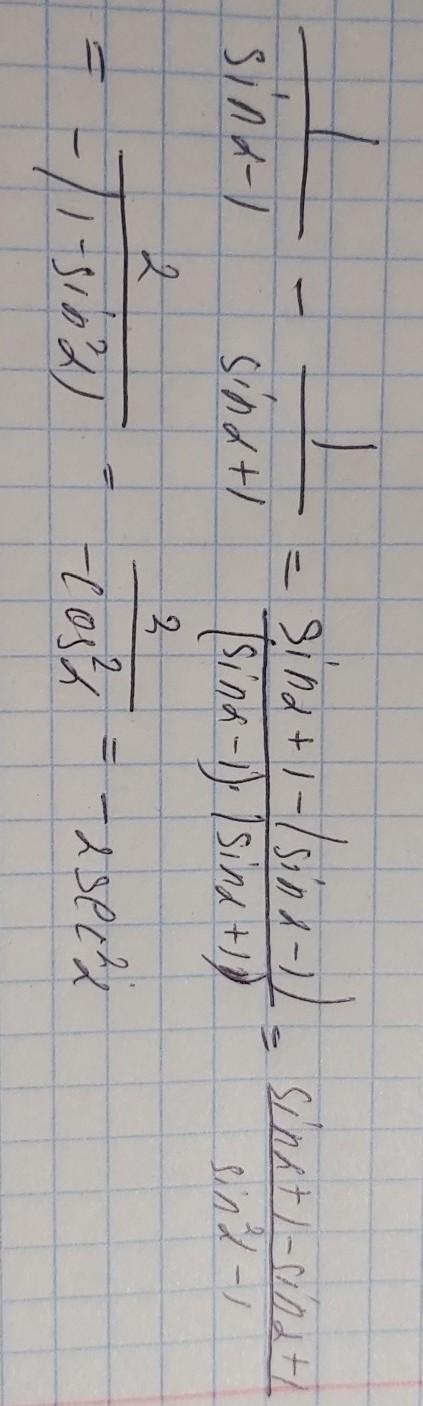 1/(sinα-1) - 1/(sinα+1) = (sinα+1-(sinα-1))/((sinα-1)·(sinα+1)) = (sinα+1-sinα+1)/(sin²α-1)
= 2/(-(1-sin²α)) = 2/(-cos²α) = -2sec²α